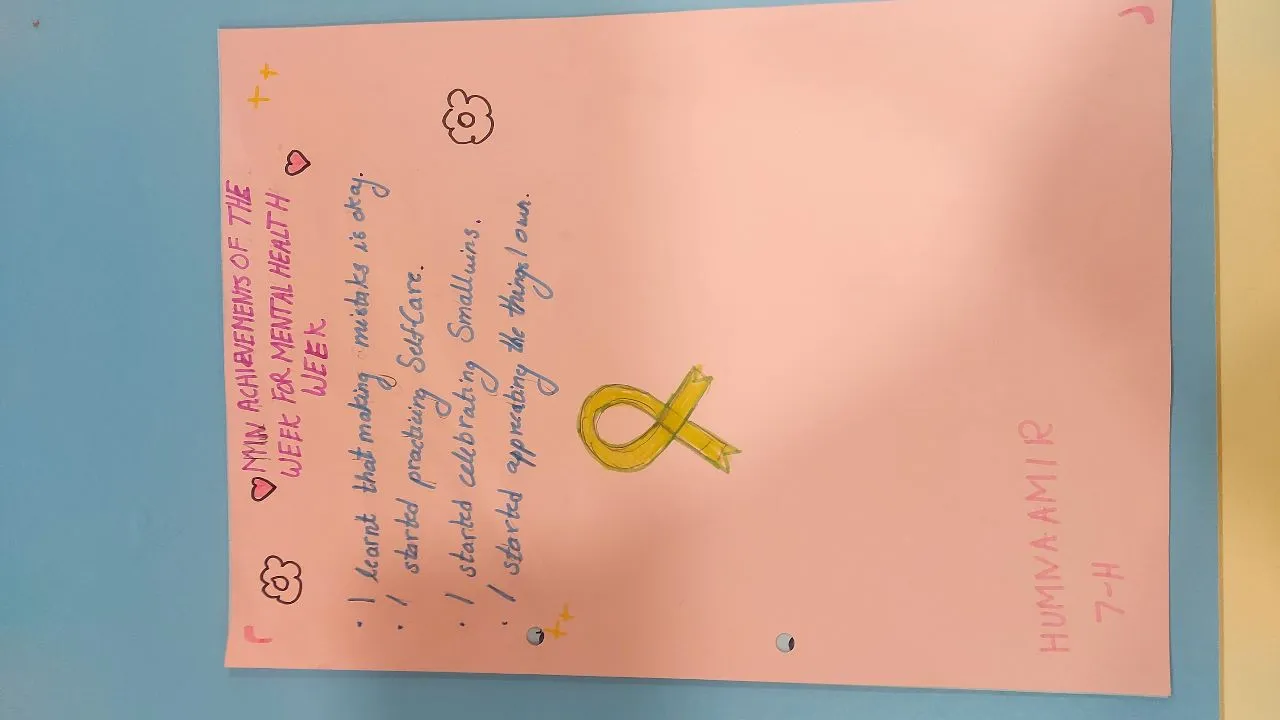 MMN ACHIEVEMENTS OF THE
WEEK FOR MENTAL HEALTH
WEEK
• I learnt that making mistaks is okay.
• I started practicing SelfCare.
• I started celebrating Smallwins.
• I started apprecating the things I own.
HUMNA AMIR
7-H